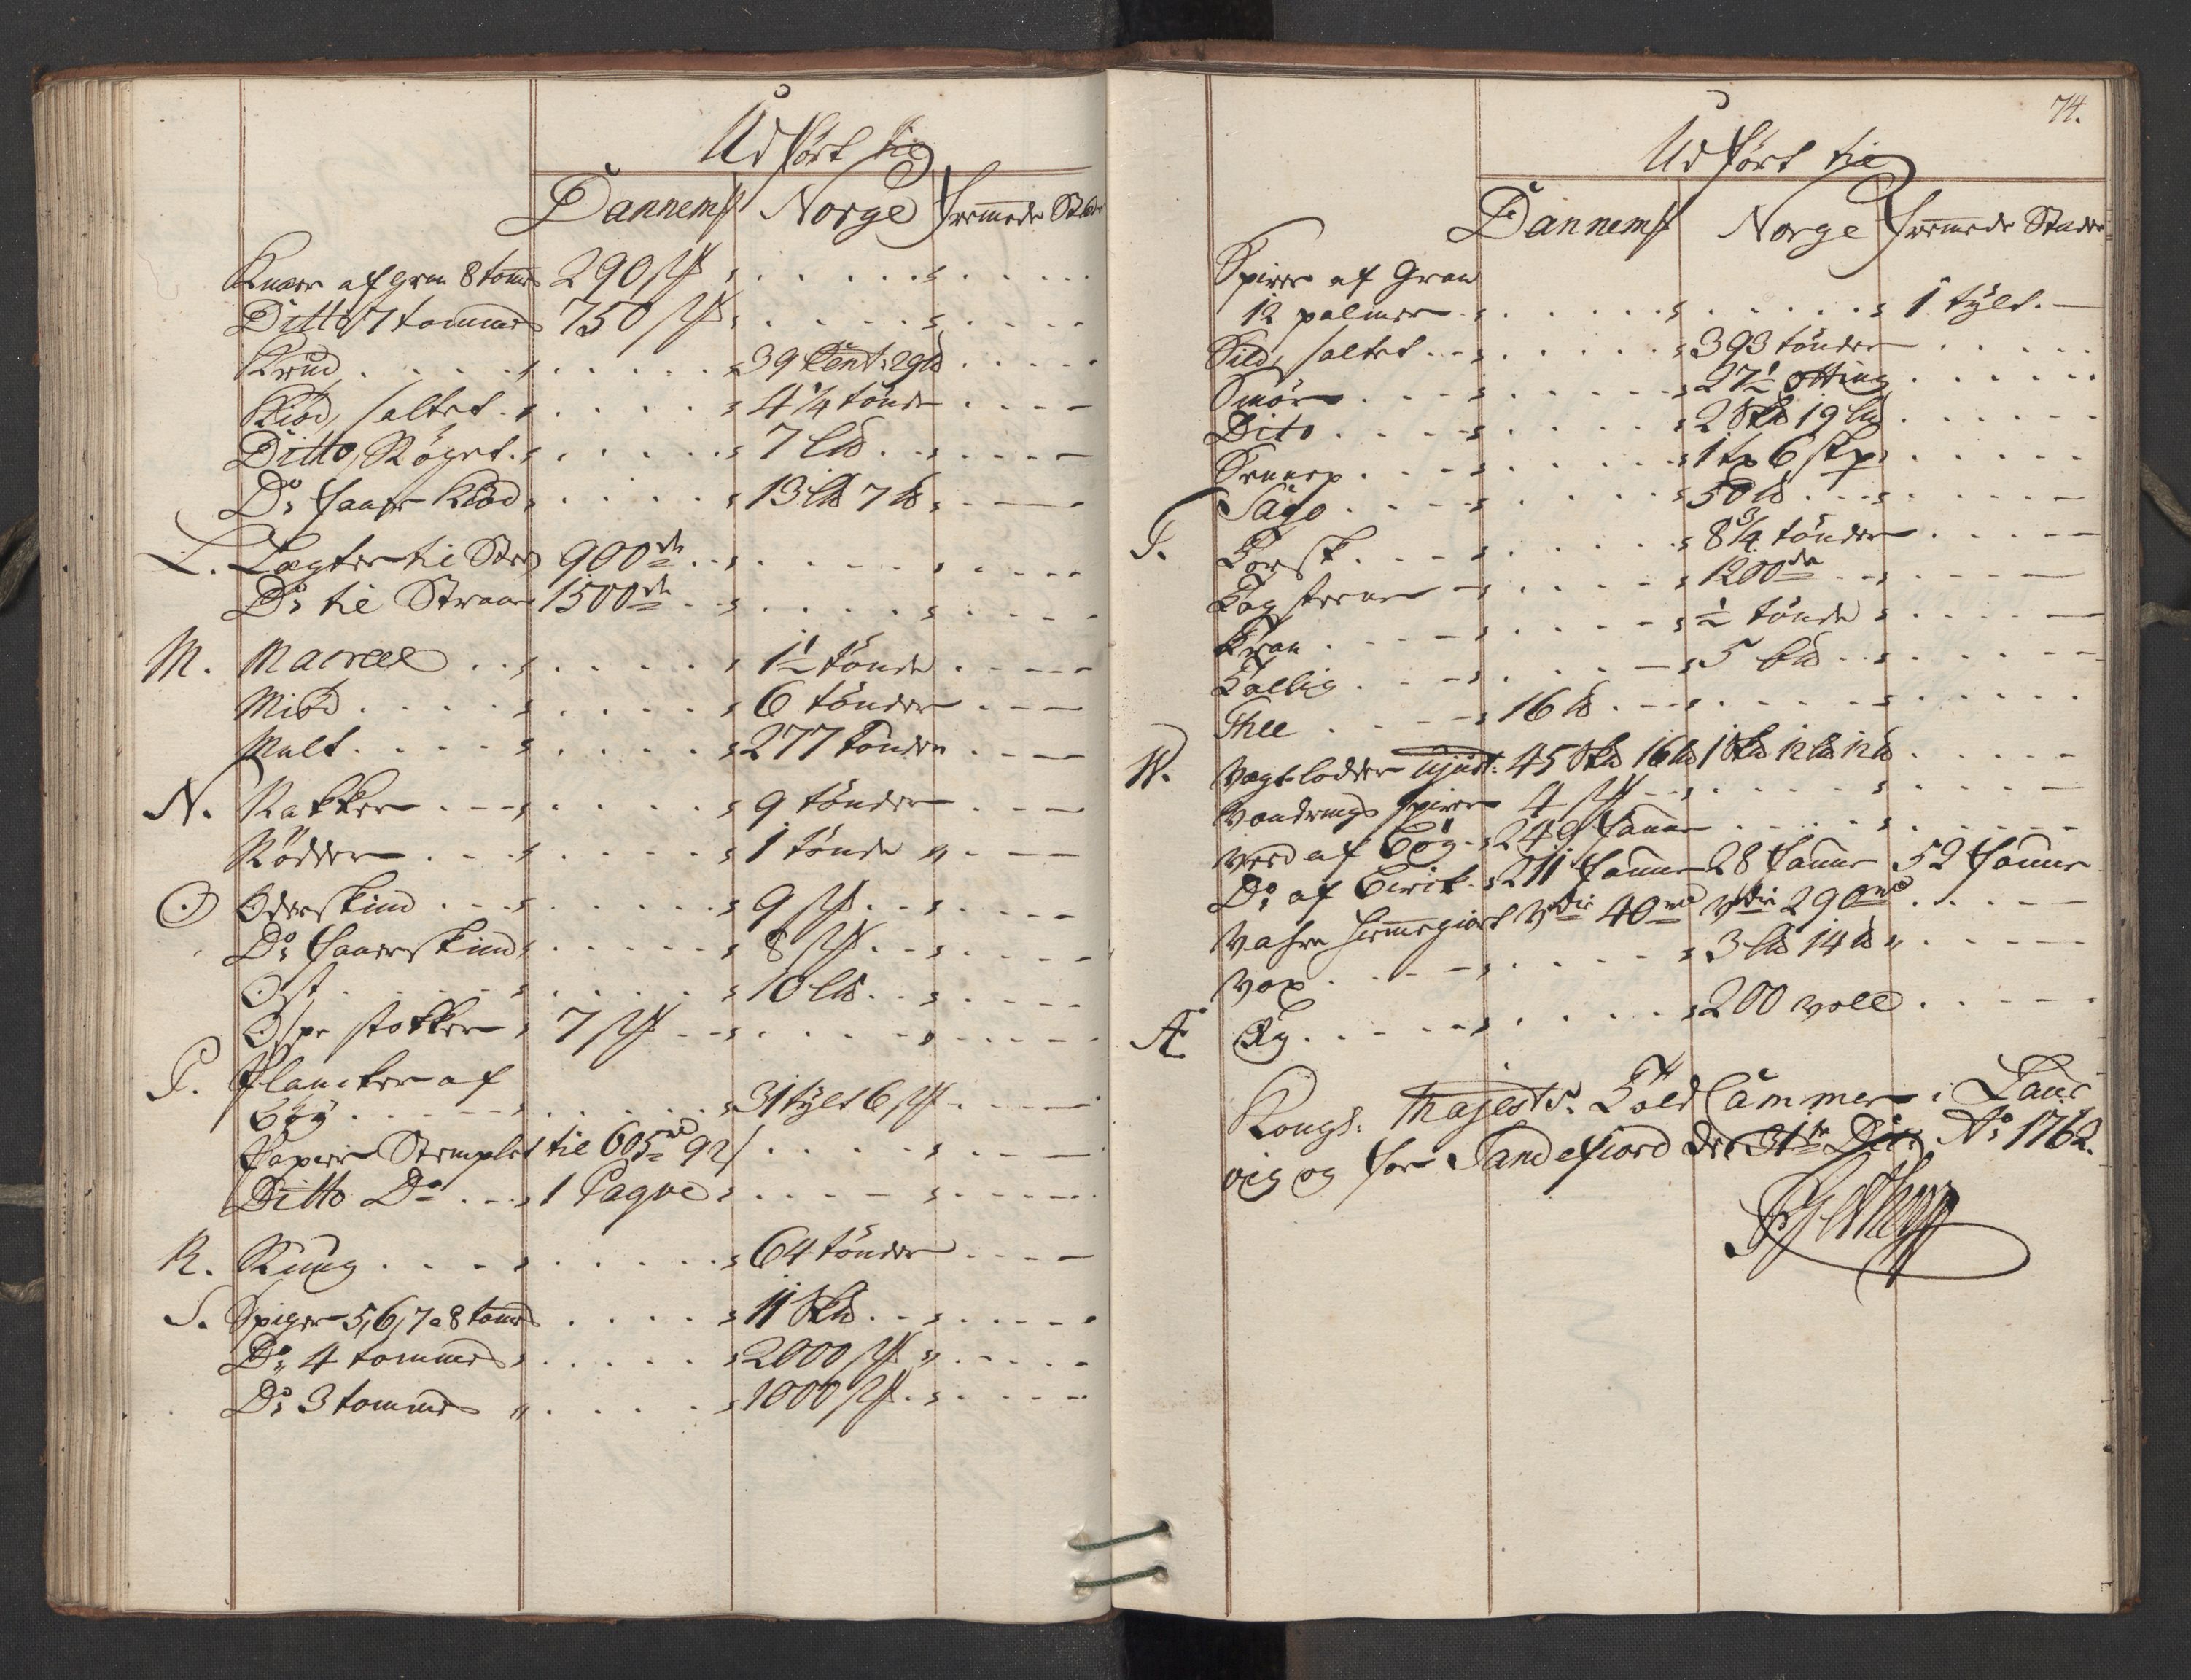 Udført til
Dannemk Norge fremmede Stæder
Knær af gran 8 tomr 290 stk
Ditto 7 tommer 750 stk
Krud 39 Cent: 29 lb
Kiød, saltet 4 1/4 tønde
Ditto, Røget 7 Lb
Do faare kiød 13 Lb 7 lb
L. Lægter til 900 de
Do til 1500 de
M. Macrell 1 1/2 tønde
Miød 6 tønder
Malt 277 tønder
N. Nakker 9 tønder
Rødder 1 tønde
O Oderskind 9 stk
Do faareskind 8 stk
Ost 10 Lb
Ospe stokker 7 stk
P. Plancker af
Bøg 31 tylt 6 stk
Papiir Stemplet til 605 rd 92 s
Ditto Do 1 Paqve
R. Rung 64 tønder
S. Spiger 5, 6, 7 a 8 tomr 11 Skb
Do 4 tommer 2000 stk
Do 3 tommer 1000 stk
74.
Udført til
Dannemk Norge fremmede Stæder
Spirer af Gran
12 palmer 1 tylt.
Sild, saltet 393 tønder
Smør 27 1/2 otting
Dito 2 Skb 19 Lb
Sennep 1 tr 6 skp
Sago 50 lb
T. Torsk 8 3/4 tønder
Tagsteene 1200 de
Tran 1/2 tønde
Tallig 5 Lb
Thee 16 lb
W. Vægtlodder Ujust: 45 Skb 16 Lb 1 Skb 12 Lb 12 lb
Vandrings spirer 4 stk
Veed af Bøg 249 faune
Do af Birik 211 faune 28 faune 52 faune
Vahre hiemegiort Vdie 40 rd Vdie 290 rd
Vox 3 Lb 14 lb
Æ Æg 200 voll
Kongl: Majests. Told Cammer i Laur
vig og for Sandefiord den 31te Dec: Ao 1762.